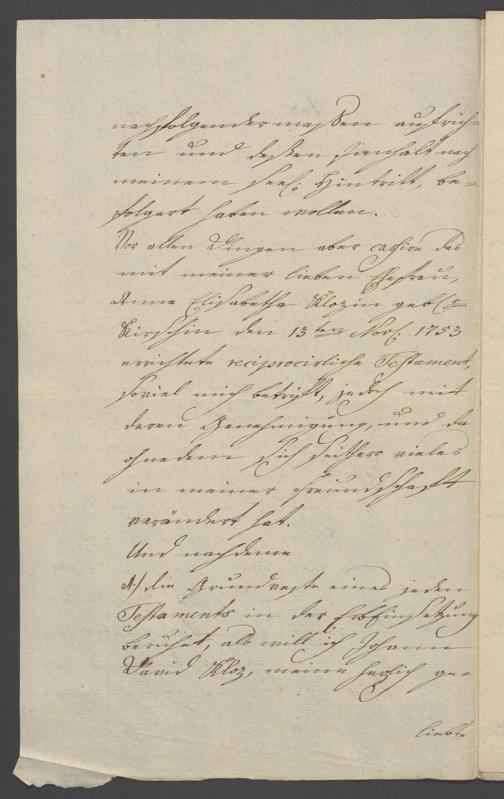 nachfolgendermaßen aufrich=
ten und deßen Innhalt nach
meinem seel: Hintritt, be=
folgert haben wollen.
Vor allen Dingen aber cassire das
mit meiner lieben Ehefrau,
Anna Elisabetha Klozin gebl:
Kirschin den 13 Novl: 1753
errichtete reciprocirliche Testament,
soviel mich betrifft, jedoch mit
deren Genehmigung, und da
ohnedem sich seithero vieles
in meiner Freundschafft
verändert hat.
Und nachdeme
1./ die Grundveste eines jeden
Testaments in der Erbeinsetzung
beruhet, als will ich Johann
David Kloz, meine herzlich ge=
liebte